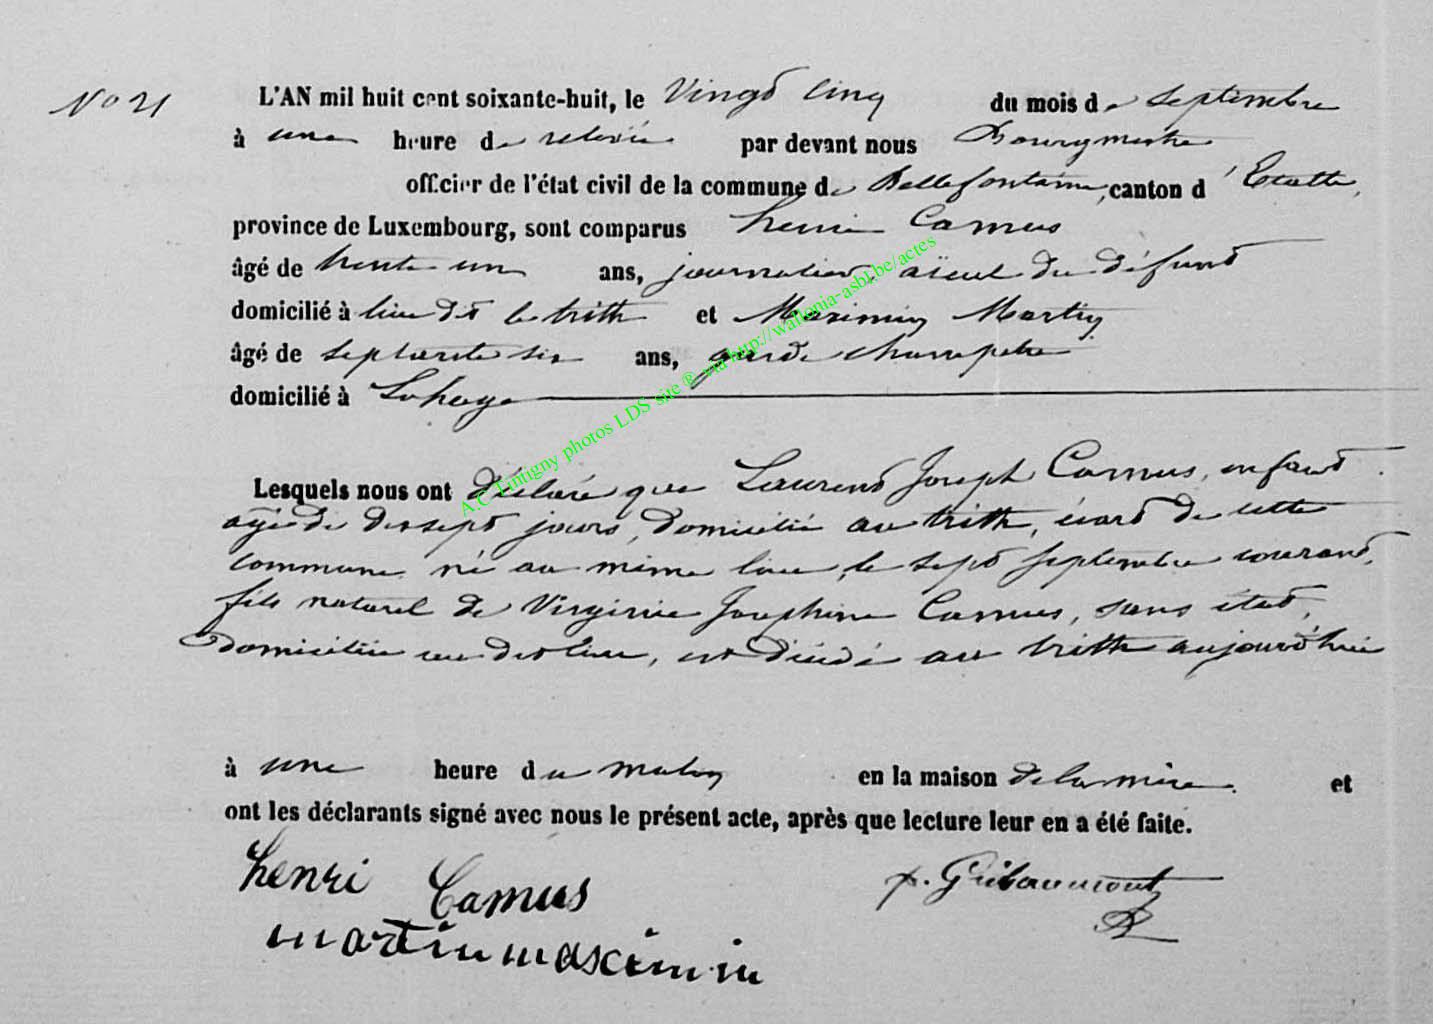 No 21
L'AN mil huit cent soixante-huit, le Vingt cinq du mois de septembre
à une heure de relevée par devant nous Bourgmestre
officier de l'état civil de la commune de Bellefontaine, canton d'Etalle,
province de Luxembourg, sont comparus henri Camus
âgé de trente un ans, journalier, aïeul du défunt
domicilié à lieu dit le trith et Maximin Martin
âgé de septante six ans, garde champêtre
domicilié à Lahage
Lesquels nous ont déclaré que Laurent Joseph Camus, enfant
âgé de dix sept jours, domicilié au trith, écart de cette
commune, né au même lieu, le sept septembre courant,
fils naturel de Virginie Josephine Camus, sans état,
domiciliée au dit lieu, est décédé au trith aujourd'hui
à une heure du matin en la maison de la mère et
ont les déclarants signé avec nous le présent acte, après que lecture leur en a été faite.
henri Camus
martin mascimin
p. Gribaumont
A.C Tintigny photos LDS site ® via http://wallonia-asbl.be/actes